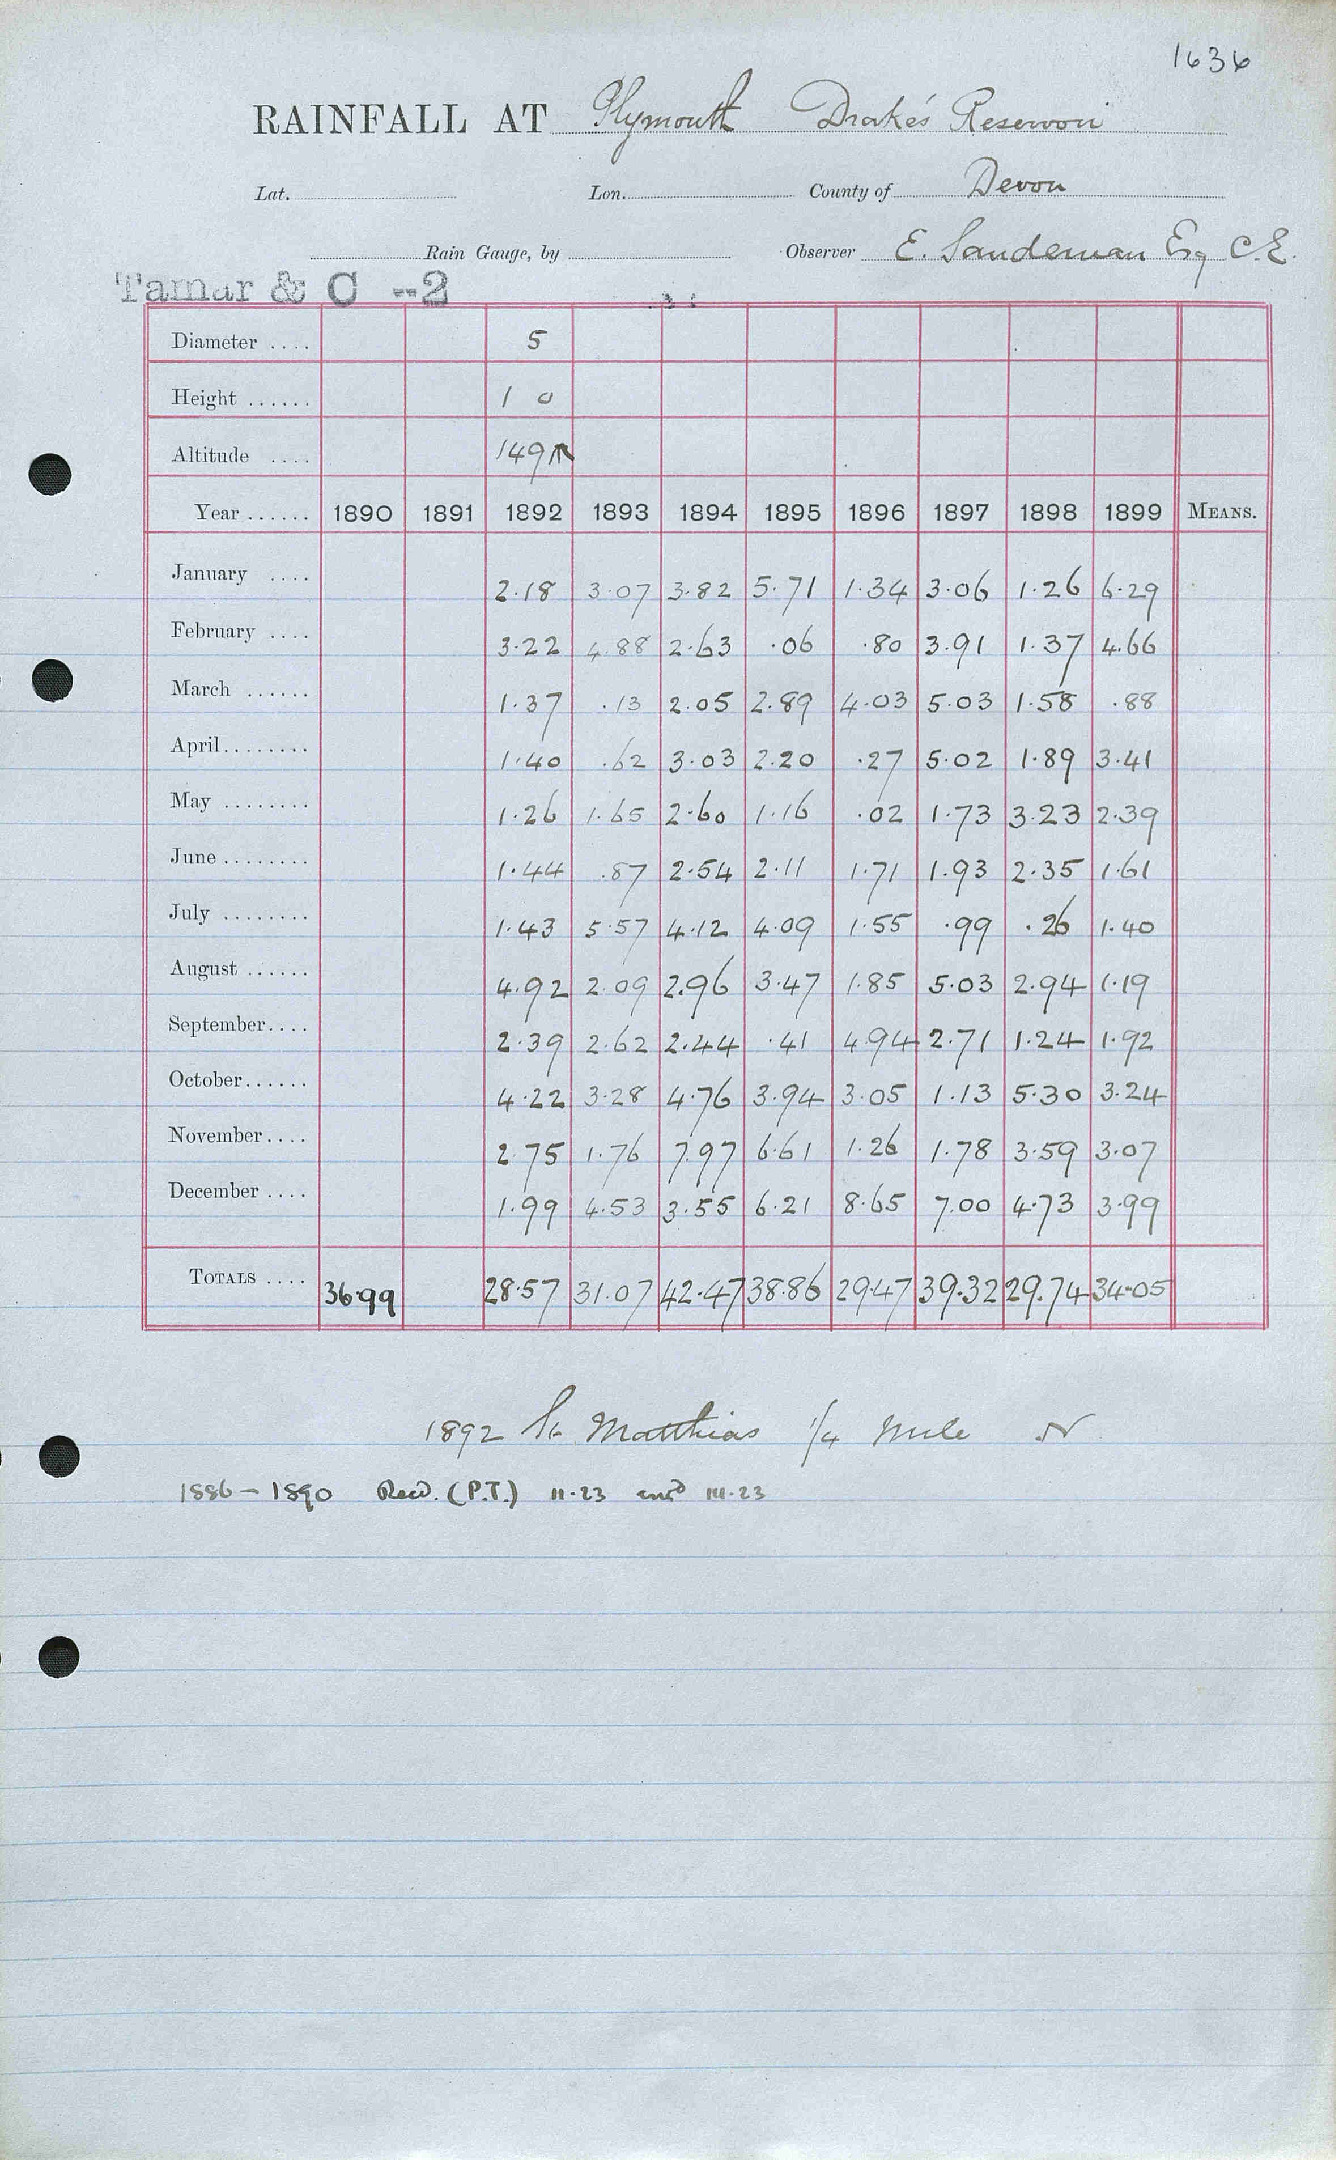 1636
RAINFALL AT Plymouth Drake's Reservoir
Lat. Lon. County of Devon
Rain Gauge, by Observer E. Sandeman Esq C.E.
Tamar & C --2
Diameter .... 5
Height ...... 1 0
Altitude .... 149
Year ...... 1890 1891 1892 1893 1894 1895 1896 1897 1898 1899 MEANS.
January .... 2.18 3.07 3.82 5.71 1.34 3.06 1.26 6.29
February .... 3.22 4.88 2.63 .06 .80 3.91 1.37 4.66
March ...... 1.37 .13 2.05 2.89 4.03 5.03 1.58 .88
April........ 1.40 .62 3.03 2.20 .27 5.02 1.89 3.41
May ........ 1.26 1.65 2.60 1.16 .02 1.73 3.23 2.39
June ........ 1.44 .87 2.54 2.11 1.71 1.93 2.35 1.61
July ........ 1.43 5.57 4.12 4.09 1.55 .99 .26 1.40
August ...... 4.92 2.09 2.96 3.47 1.85 5.03 2.94 1.19
September.... 2.39 2.62 2.44 .41 4.94 2.71 1.24 1.92
October...... 4.22 3.28 4.76 3.94 3.05 1.13 5.30 3.24
November.... 2.75 1.76 7.97 6.61 1.26 1.78 3.59 3.07
December .... 1.99 4.53 3.55 6.21 8.65 7.00 4.73 3.99
TOTALS .... 36.99 28.57 31.07 42.47 38.86 29.47 39.32 29.74 34.05
1892 St. Matthias 1/4 Mile N
1886 - 1890 Recd. (P.T.) II.23 and III.23